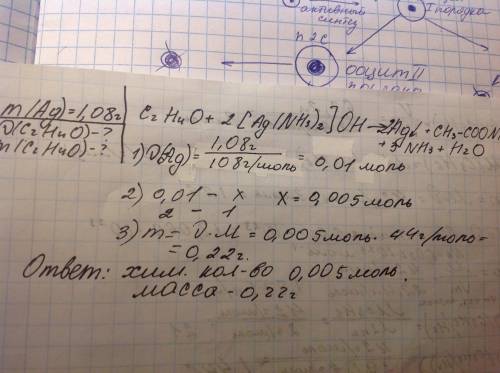 активном
синтез
I порядка
n2c
ооцит II
m(Ag)=1,08г
ν(C2H4O)-?
m(C2H4O)-?
C2H4O + 2[Ag(NH3)2]OH → 2Ag↓ + CH3-COON
+3 NH3 + H2O
1) ν(Ag) = 1,08г / 108г/моль = 0,01 моль
2) 0,01 - x   x = 0,005 моль
2 - 1
3) m = ν·M = 0,005моль · 44г/моль =
= 0,22г.
Ответ: хим. кол-во 0,005 моль,
масса - 0,22г